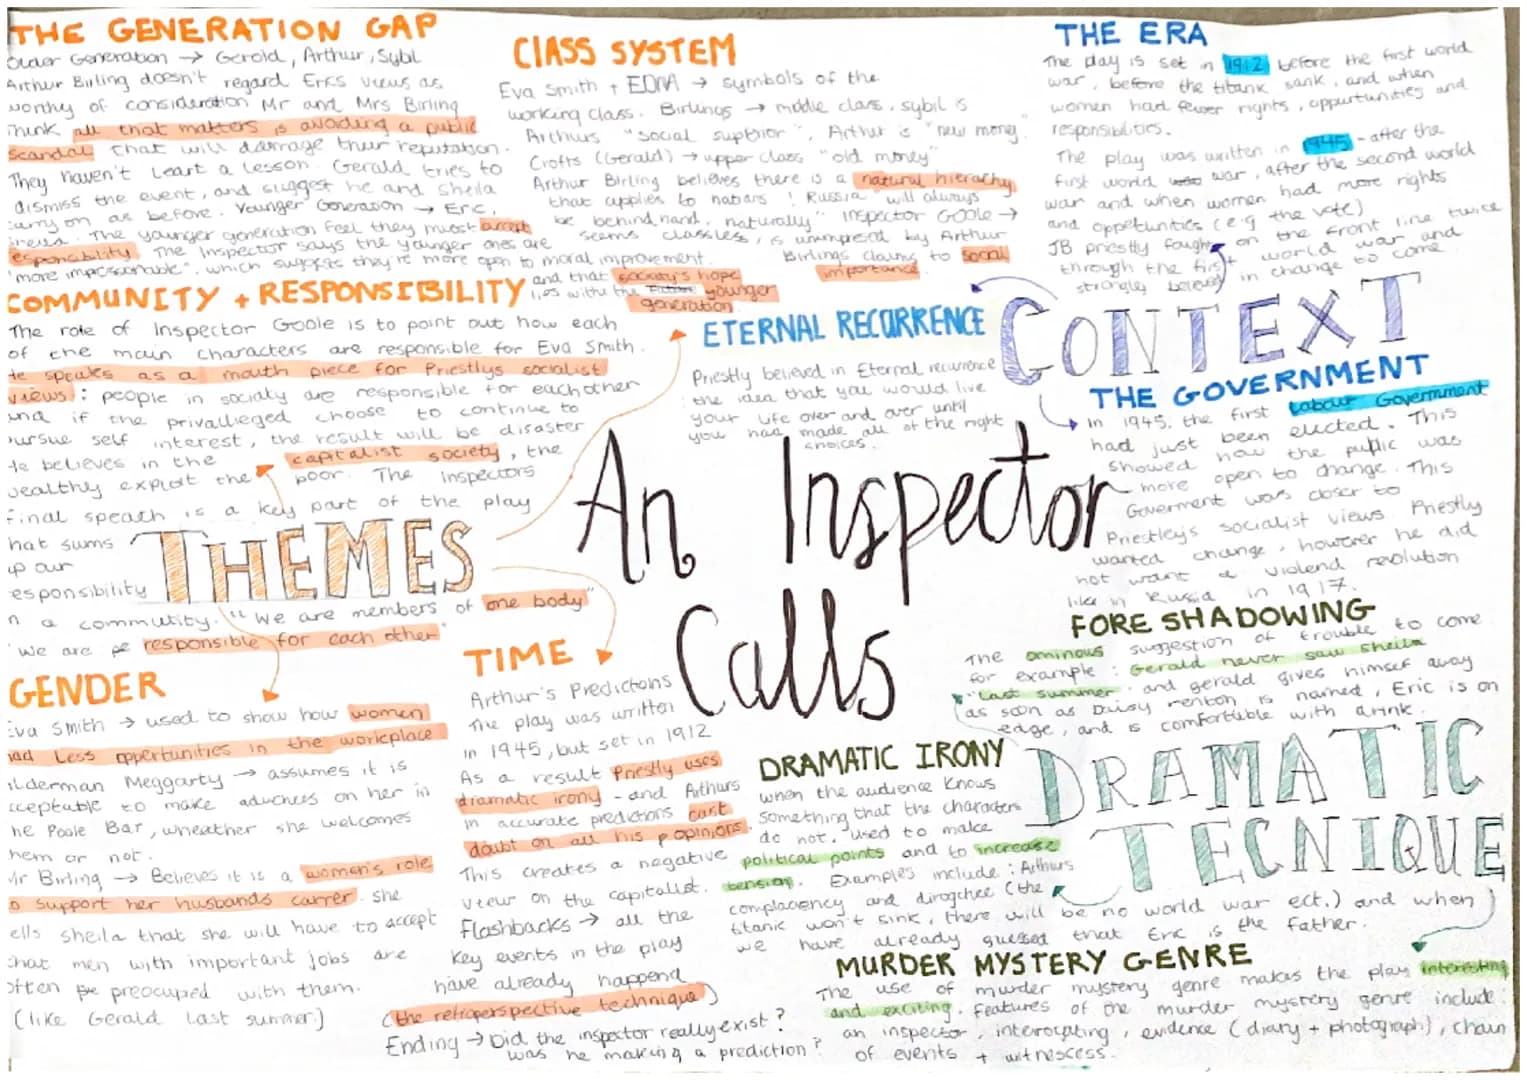 THE GENERATION GAP
Older Generation → Gerold, Arthur, Sybil
Arthur Birling doesn't regard Eric's views as
worthy of consideration Mr and Mrs Birling
think all that matters is avoiding a public
scandal that will damage their reputation.
They haven't leart a lesson. Gerald tries to
dismiss the event, and suggest he and Sheila
carry on as before. Younger Generation → Eric,
Sheila. The younger generation feel they must accept
responsibility. The Inspector says the younger ones are
"more impressionable", which suggests they're more open to moral improvement.
and that society's hope
lies withe the younger
generation
CLASS SYSTEM
Eva Smith + EDNA → symbols of the
working class. Birlings → middle class, sybil is
Arthurs "social suptior", Arthur is "new money."
Crofts (Gerald) → upper class "old money"
Arthur Birling believes there is a natural hierachy,
that applies to nations ! Russia "will always
be behindhand, naturally" Inspector Goole →
seems classless, is unimpressed by Arthur
Birlings claims to social
importance.
THE ERA
The play is set in 1912 before the first world
war, before the titanic sank, and when
women had fewer rights, oppurtunities and
responsibilities.
The play was written in 1945 - after the
first world war, after the second world
war and when women had more rights
and oppetunities (e.g the vote)
JB priestly fought on the front line twice
through the first world war and
strongly believed in change to come
CONTEXT
COMMUNITY + RESPONSIBILITY
The role of Inspector Goole is to point out how each
of the main characters are responsible for Eva Smith.
He speaks as a mouth piece for Priestlys socialist
views: people in society are responsible for eachother
and if the privallieged choose to continue to
pursue self interest, the result will be disaster
He believes in the capitalist society, the
wealthy exploit the poor. The Inspectors
final speach is a key part of the play
that sums
up our
responsibility
in a community. "We are members of one body"
"We are responsible for each other"
THEMES
ETERNAL RECURRENCE
Priestly believed in Eternal recurrence
the idea that you would live
your life over and over until
you had made all of the right
choices.
An Inspector
Calls
THE GOVERNMENT
In 1945, the first Labour Government
had just been elected. This
showed how the public was
more open to change. This
Goverment was closer to
Priestley's socialist views. Priestly
wanted change, however he did
not want a violend revolution
like in Russia in 1917.
GENDER
Eva Smith → used to show how women
had less oppertunities in the workplace
Alderman Meggarty → assumes it is
acceptable to make advances on her in
the Palace Bar, wheather she welcomes
them or not.
Mr Birling → Believes it is a women's role
to support her husbands carrer. she
tells sheila that she will have to accept
that men with important jobs are
often be preocupied with them.
(like Gerald last summer.)
TIME
Arthur's Predictions
The play was written
in 1945, but set in 1912
As a result Priestly uses
dramatic irony - and Arthurs
in accurate predictions cast
doubt on all his popinions.
This creates a negative
view on the capitalist.
Flashbacks → all the
key events in the play
have already happend
(the retrospective technique)
Ending → Did the inspector really exist?
was he making a prediction?
FORE SHADOWING
The ominous suggestion of trouble to come
for example: Gerald never saw Sheila
"last summer" and gerald gives himself away
as soon as Daisy renton is named, Eric is on
edge, and is comfortible with a drink.
DRAMATIC
TECNIQUE
DRAMATIC IRONY
when the audience knows
something that the characters
do not, used to make
political points and to increase
tension. Examples include: Arthurs
complacency and (the
titanic won't sink, there will be no world war ect.) and when
we have already guessed that Eric is the father.
MURDER MYSTERY GENRE
The use of murder mystery genre makes the play interesting
and exciting. Features of the murder mystery genre include:
an inspector, interrogating, evidence (diary + photograph), chain
of events + witnescess.